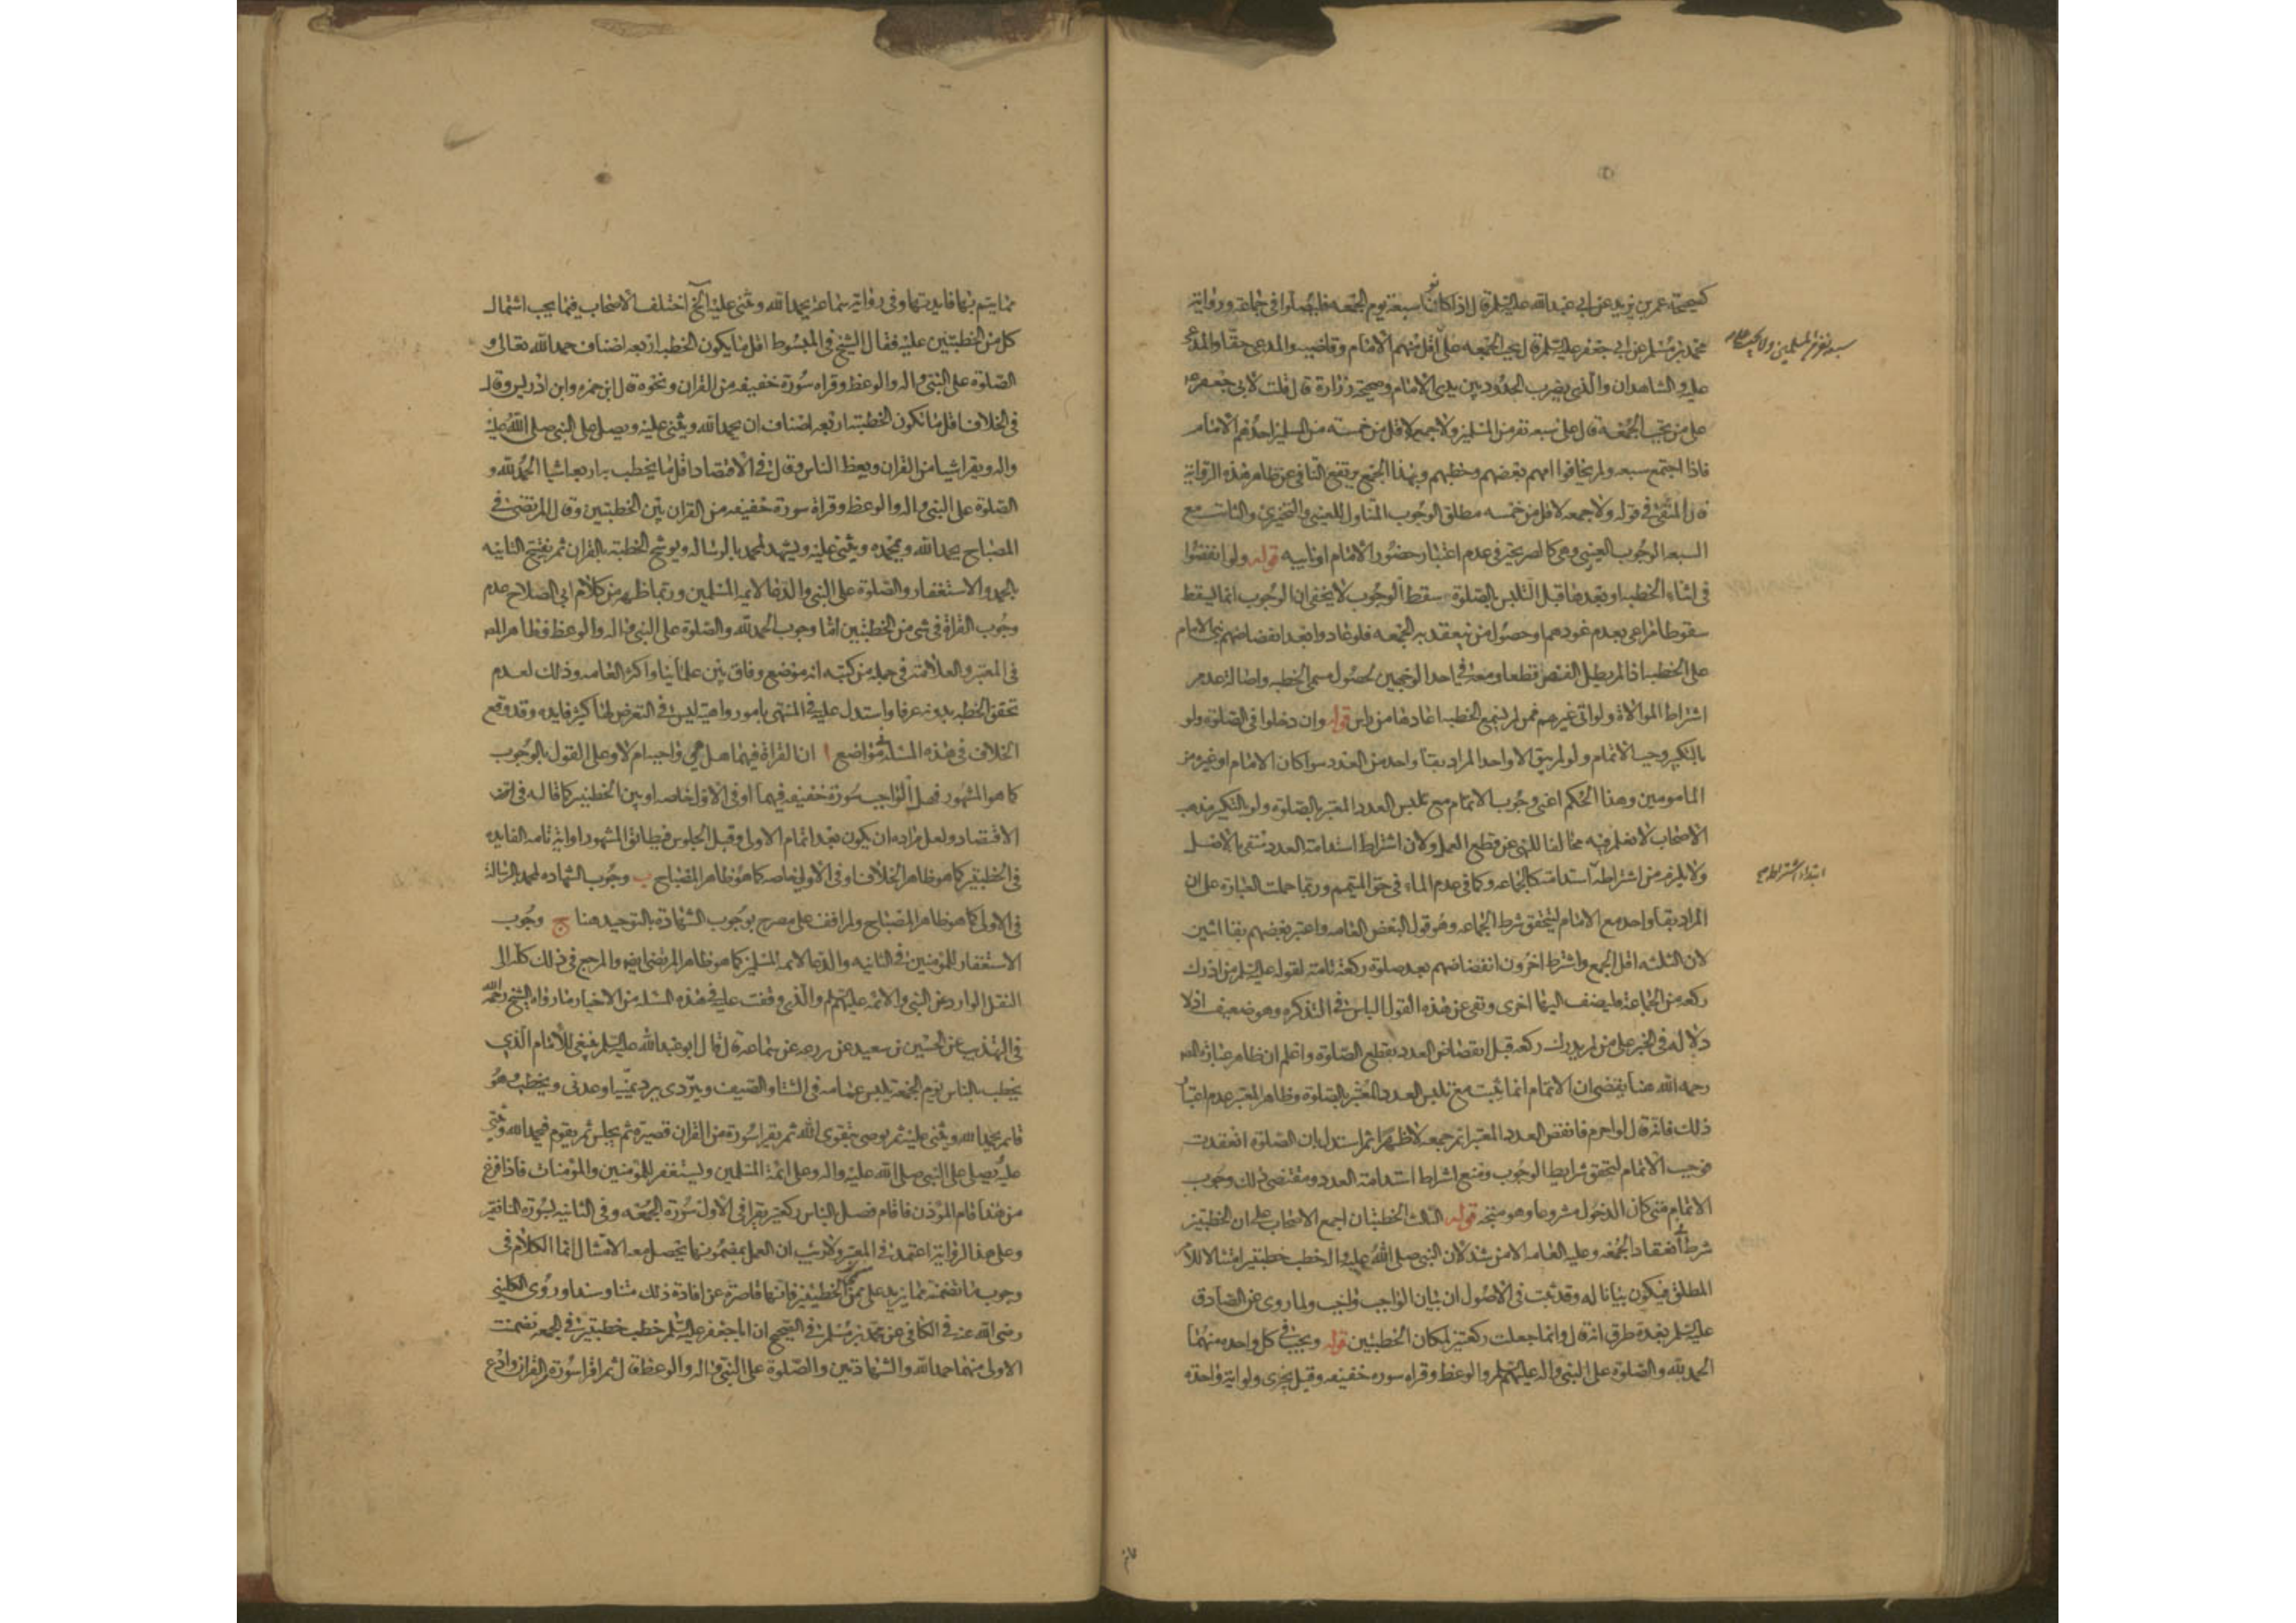 كصحيحة عمر بن يزيد عن ابي عبدالله عليه السلم قال اذا كانوا سبعة يوم الجمعه فليصلوا في جماعة ورواية
محمد بن مسلم عن ابي جعفر عليه السلم قال تجب الجمعه على اقل منهم الامام وقاضيه والمدعي حقا والمدعى
سبعة نفر من المسلمين ولا يجب على
عليه والشاهدان والذي يضرب الحدود بين يدي الامام وصحيحة زرارة قال قلت لابي جعفر ع
على من تجب الجمعة قال على سبعه نفر من المسلمين ولا جمعه لاقل من خمسه من المسلمين احدهم الامام
فاذا اجتمع سبعه ولم يخافوا امهم بعضهم وخطبهم وبهذا الجمع يرتفع التنافي عن ظاهر هذه الرواية
اذ المنفي في قوله ولا جمعه لاقل من خمسه مطلق الوجوب المتناول للعيني والتخييري والثابت مع
السبعه الوجوب العيني وهي كالصريحة في عدم اعتبار حضور الامام او نايبه قوله ولو انفضوا
في اثناء الخطبه او بعدها قبل التلبس بالصلوة سقط الوجوب لا يخفى ان الوجوب انما يسقط
سقوطا مراعى بعدم عودهم او حصول من ينعقد به الجمعه فلو عادوا بعد انفضاضهم بنى الامام
على الخطبه اذا لم يطل الفصل قطعا ومعه في احد الوجهين لحصول مسمى الخطبه واصالة عدم
اشتراط الموالاة ولو اتى غيرهم ممن لم يسمع الخطبه اعادها من راس قوله وان دخلوا في الصلوة ولو
بالتكبير وجب الاتمام ولو لم يبق الا واحد المراد بقاء واحد من العدد سوا كان الامام او غيره من
المامومين وهذا الحكم اعني وجوب الاتمام مع تلبس العدد المعتبر بالصلوة ولو بالتكبير مذهب
الاصحاب لا نعلم فيه مخالفا للنهي عن قطع العمل ولان اشتراط استدامة العدد منتفى بالاصل
ولا يلزم من اشتراطه استدامته كالجماعه وكما في عدم الماء في حق المتيمم وربما حملت العبارة على ان
ابتداء اشتراطه صح
المراد بقاء واحد مع الامام ليتحقق شرط الجماعه وهو قول لبعض العامه واعتبر بعضهم بقا اثنين
لان الثلثه اقل الجمع واشترط اخرون انفضاضهم بعد صلوة ركعة تامة لقوله عليه السلم من ادرك
ركعه من الجماعه فليضف اليها اخرى ونفى عن هذه القول الباس في التذكره وهو ضعيف اذ لا
دلالة في الخبر على من لم يدرك ركعه قبل انفضاض العدد بقطع الصلوة واعلم ان ظاهر عبارة المص
رحمه الله هنا يقتضي ان الاتمام انما يثبت مع تلبس العدد المعتبر بالصلوة وظاهر المعتبر عدم اعتبار
ذلك فانه قال لو احرم فانفض العدد المعتبر اتم جمعه لا ظهرا ثم استدل بان الصلوة انعقدت
فوجب الاتمام لتحقق شرايط الوجوب ومنع اشتراط استدامة العدد ومقتضى ذلك وجوب
الاتمام متى كان الدخول مشروعا وهو متجه قوله الثالث الخطبتان اجمع الاصحاب على ان الخطبتين
شرط انعقاد الجمعه وعليه العامه الا من شذ لان النبي صلى الله عليه واله خطب خطبتين امتثالا للامر
المطلق فيكون بيانا له وقد ثبت في الاصول ان بيان الواجب واجب ولما روى عن الصادق
عليه السلم بعدة طرق انه قال وانما جعلت ركعتين لمكان الخطبتين قوله ويجب في كل واحده منهما
الحمد لله والصلوة على النبي واله عليهم السلم والوعظ وقراة سورة خفيفه وقيل يجزى ولو اية واحدة
مما يتم بها فايدتها وفي رواية سماعة يحمد الله ويثنى عليه الخ اختلف الاصحاب فيما يجب اشتمال
كل من الخطبتين عليه فقال الشيخ في المبسوط اقل ما يكون الخطبه اربعه اصناف حمد الله تعالى و
الصلوة على النبي واله والوعظ وقراة سورة خفيفه من القران ونحوه قال ابن حمزه وابن ادريس وقال
في الخلاف اقل ما تكون الخطبة اربعه اصناف ان يحمد الله ويثنى عليه ويصلى على النبي صلى الله عليه
واله ويقرا شيا من القران ويعظ الناس وقال في الاقتصاد اقل ما يخطب به اربعه اشيا الحمد لله و
الصلوة على النبي واله والوعظ وقراة سورة خفيفه من القران بين الخطبتين وقال المرتضى في
المصباح يحمد الله ويمجده ويثنى عليه ويشهد لمحمد بالرساله ويوشح الخطبة بالقران ثم يفتتح الثانيه
بالحمد والاستغفار والصلوة على النبي والدعا لايمه المسلمين وربما ظهر من كلام ابي الصلاح عدم
وجوب القراة في شى من الخطبتين اما وجوب الحمد لله والصلوة على النبي واله والوعظ فظاهر المص
في المعتبر والعلامة في جمله من كتبه انه موضع وفاق بين علمائنا واكثر العامه وذلك لعدم
تحقق الخطبه بدونه عرفا واستدل عليه في المنتهى بامور واهية ليس في التعرض لها كثير فايده وقد وقع
الخلاف في هذه المسئلة في مواضع ا ان القراة فيهما هل هي واجبه ام لا وعلى القول بالوجوب
كما هو المشهور فهل الواجب سورة خفيفه فيهما او في الاولى خاصه او بين الخطبتين كما قاله في
الاقتصاد ولعل مراده ان يكون بعد اتمام الاولى وقبل الجلوس فيطابق المشهور او اية تامه الفايده
في الخطبتين كما هو ظاهر الخلاف او في الاولى خاصه كما هو ظاهر المصباح ب وجوب الشهاده لمحمد بالرسالة
في الاولى كما هو ظاهر المصباح ولم اقف على مصرح بوجوب الشهادة بالتوحيد هنا ج وجوب
الاستغفار للمؤمنين في الثانيه والدعا لايمه المسلمين كما هو ظاهر المرتضى ايضا والمرجع في ذلك كله الى
النقل الوارد عن النبي والائمه عليهم السلم والذي وقفت عليه في هذه المسئله من الاخبار ما رواه الشيخ رحمه الله
في التهذيب عن الحسين بن سعيد عن زرعه عن سماعة قال قال ابو عبدالله عليه السلم ينبغي للامام الذي
يخطب بالناس يوم الجمعة يلبس عمامه في الشتا والصيف ويتردى ببرد يمنية او عدني ويخطب هو
قائم يحمد الله ويثنى عليه ثم يوصى بتقوى الله ثم يقرا سورة من القران قصيرة ثم يجلس ثم يقوم فيحمد الله ويثنى
عليه ويصلى على النبي صلى الله عليه واله وعلى ائمة المسلمين ويستغفر للمؤمنين والمؤمنات فاذا فرغ
من هذا قام المؤذن فاقام فصلى بالناس ركعتين يقرا في الاولى سورة الجمعه وفي الثانيه بسورة المنافقين
وعلى هذا الرواية اعتمد في المعتبر ولا ريب ان العمل بمضمونها يحصل معه الامتثال انما الكلام في
وجوب ما تضمنته مما يزيد على مسمى الخطبتين فانها قاصرة عن افادة ذلك متنا وسندا وروى الكليني
رضى الله عنه في الكافي عن محمد بن مسلم في الصحيح ان ابا جعفر عليه السلم خطب خطبتين في الجمعه تضمنت
الاولى منهما حمد الله والشهادتين والصلوة على النبي واله والوعظ قال ثم اقرا سورة من القران وادع